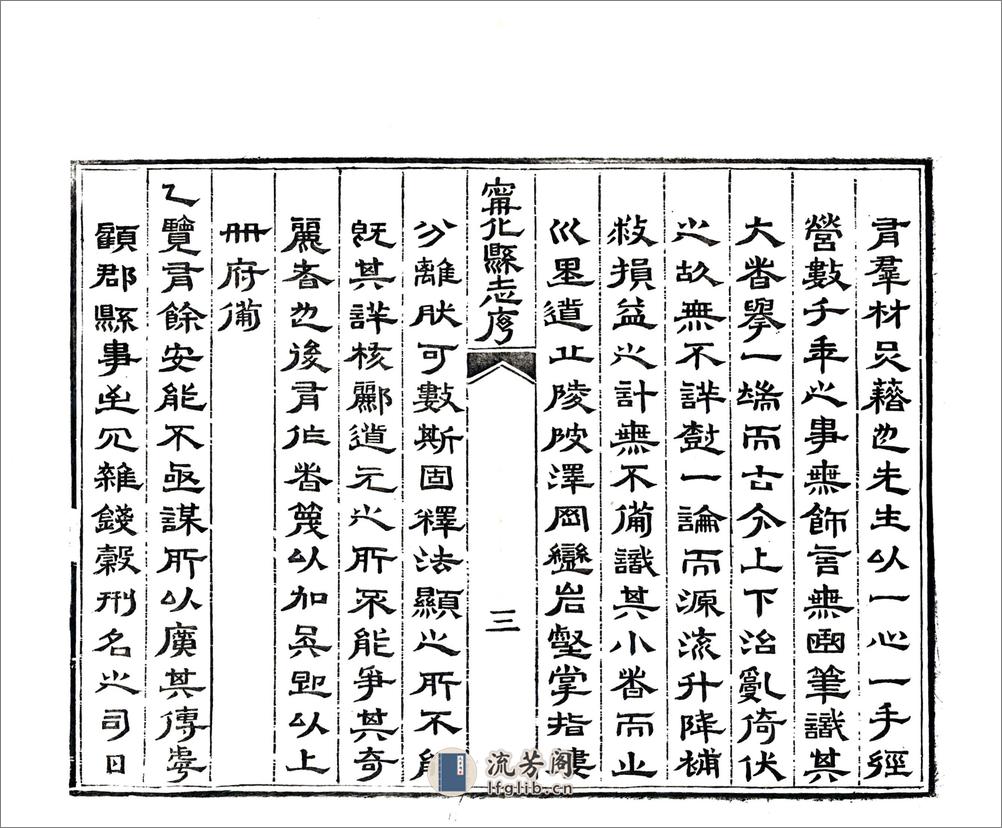 有羣材足藉也先生以一心一手經
營數千年之事無飾言無曲筆識其
大者舉一端而古今上下治亂倚伏
之故無不詳鼓一論而源流升降補
救損益之計無不備識其小者而山
川里道丘陵陂澤岡巒岩壑掌指縷
寧化縣志序
三
分離狀可數斯固釋法顯之所不能
既其詳核酈道元之所不能爭其奇
麗者也後有作者蔑以加矣即以上
冊府備
乙覽有餘安能不亟謀所以廣其傳乎
顧郡縣事至冗雜錢穀刑名之司日
流芳阁
lfglib.cn